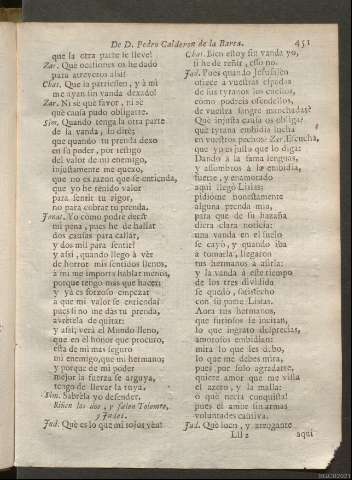 De D. Pedro Calderon de la Barca. 451
que la otra parte le lleve!
Zar. Què ocasiones os he dado
para atreveros assi?
Chat. Que la partiesen, y à mi
me ayan sin vanda dexado!
Zar. Ni sè què favor, ni sè
què causa pudo obligarte.
Sim. Quando tenga la otra parte
de la vanda, lo dirè;
que quando tu prenda dexo
en su poder, por testigo
del valor de mi enemigo,
injustamente me quexo,
que no es razon que se entienda,
que yo he tenido valor
para sentir tu rigor,
no para cobrar tu prenda.
Jonat. Yo como podrè decir
mi pena, pues he de hallar
dos causas para callar,
y dos mil para sentir!
y assi, quando llego à vèr
de horror mis sentidos llenos,
à mi me importa hablar menos,
porque tengo mas que hacer;
y yà es forzoso empezar
à que mi valor se entienda:
pues si no me dàs tu prenda,
avrètela de quitar:
y assi, verà el Mundo lleno,
que en el honor que procuro,
està de mi mas seguro
mi enemigo, que mi hermano;
y porque de mi poder
mejor la fuerza se arguya,
tengo de llevar la tuya.
Sim. Sabrèla yo defender.
Riñen los dos, y salen Tolomeo,
y Judas.
Jud. Què es lo que mis ojos vèn!
Chat. Bien estoy sin vanda yo,
si he de reñir, esso no.
Jud. Pues quando Jerusalèn
ofrece à vuestras espadas
de sus tyranos los cuellos,
còmo podreis ofendellos,
de vuestra sangre manchadas?
Què injusta causa os obliga?
què tyrana embidia lucha
en vuestros pechos? Zar. Escucha,
que yo es justo que lo diga:
Dando à la fama lenguas,
y assombros à la embidia,
fuerte, y enamorado
aqui llegò Lisias;
pidiòme honestamente
alguna prenda mia,
para que de su hazaña
diera clara noticia:
una vanda en el suelo
se cayò, y quando iba
à tomarla, llegaron
tus hermanos à asirla:
y la vanda à este tiempo
de los tres dividida
se quedò, satisfecho
con su parte Lisias.
Aora tus hermanos,
que furiosos se incitan,
lo que ingrato desprecias,
amorosos embidian:
mira lo que les debo,
lo que me debes mira,
pues por solo agradarte,
quiere amor que me vista
el azero, y la malla:
ò què necia conquista!
pues el amor sin armas
voluntades cautiva.
Jud. Què loco, y arrogante
Lll 2 aqui